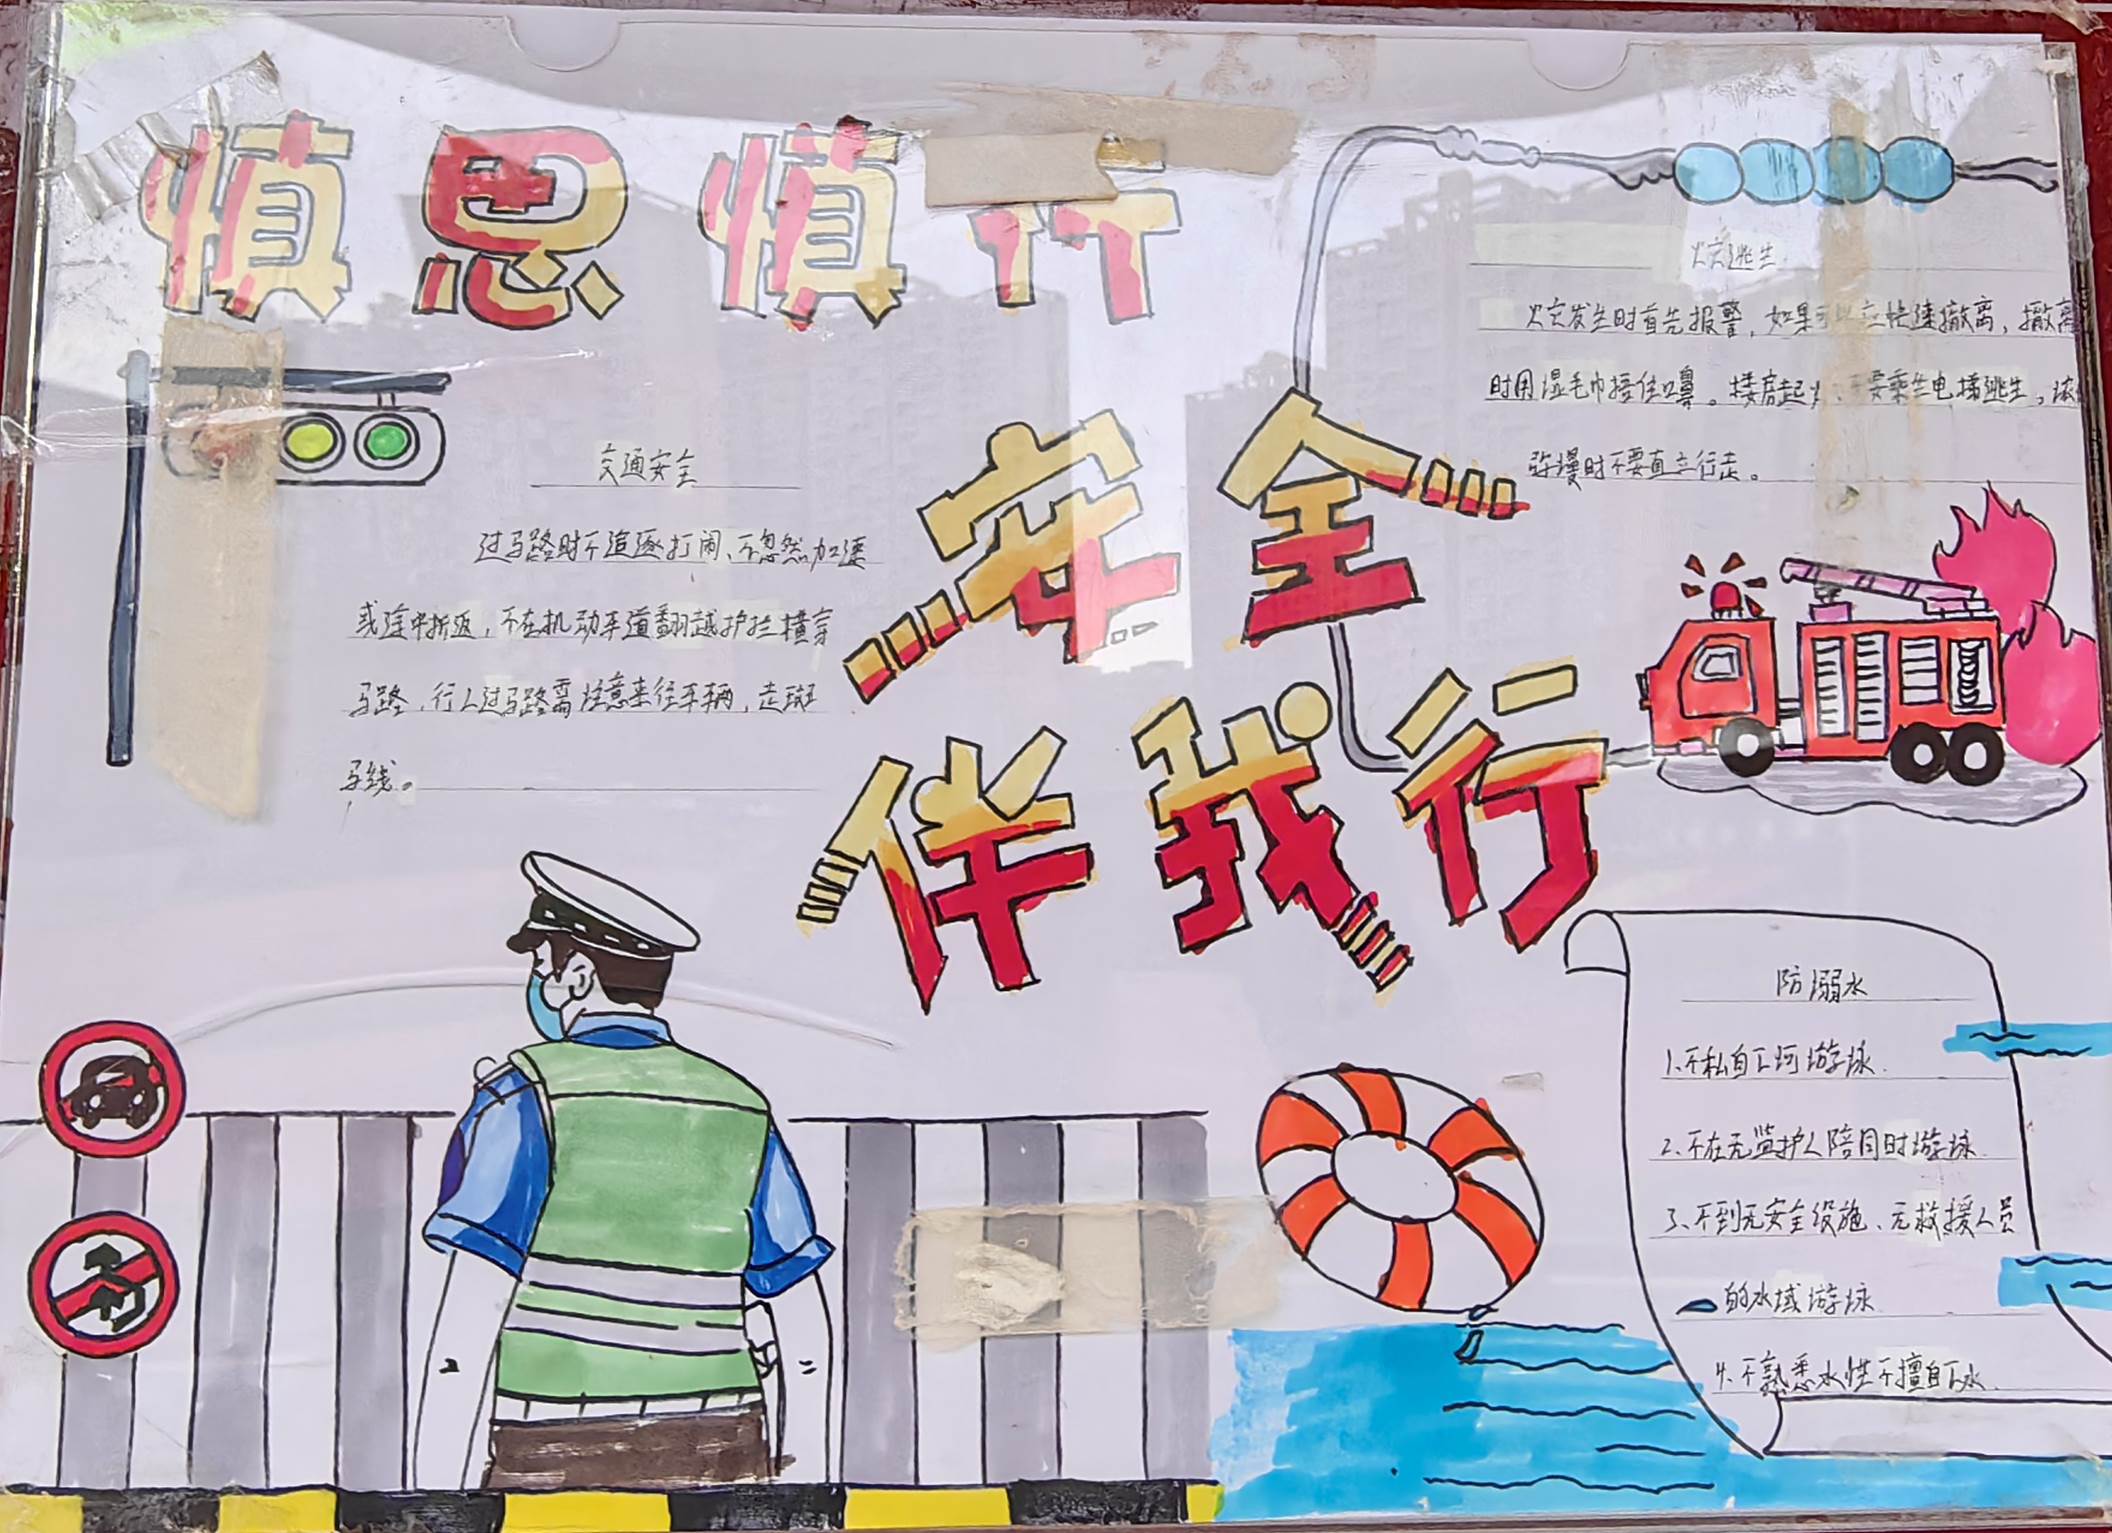 慎思慎行
安全
伴我行
交通安全
过马路时不追逐打闹、不忽然加速
或途中折返，不在机动车道翻越护拦横穿
马路，行人过马路需注意来往车辆，走斑
马线。
火灾逃生
火灾发生时首先报警，如果可以应快速撤离，撤离
时用湿毛巾捂住口鼻。楼房起火、不要乘坐电梯逃生，浓
弥漫时不要直立行走。
防溺水
1、不私自下河游泳
2、不在无监护人陪同时游泳
3、不到无安全设施、无救援人员
的水域游泳
4、不熟悉水性不擅自下水